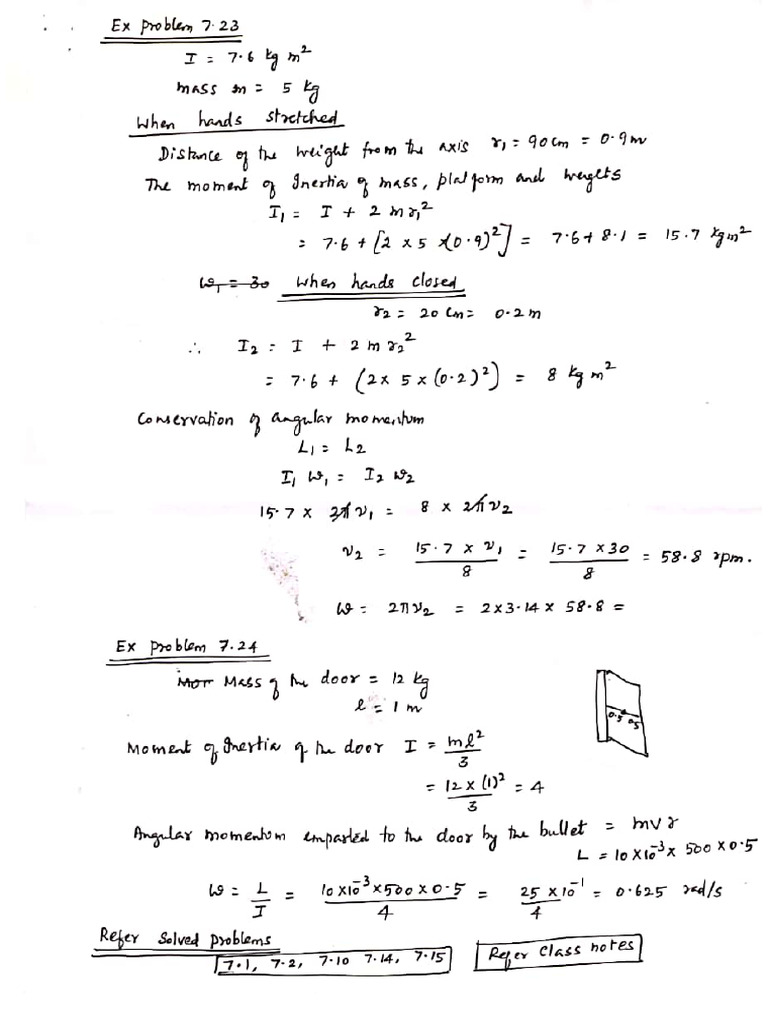 Ex Problem 7.23
I = 7.6 kg m²
mass m = 5 kg
When hands stretched
Distance of the weight from the axis r₁ = 90 cm = 0.9 m
The moment of Inertia of mass, platform and weigets
I₁ = I + 2 m r₁²
= 7.6 + [2 x 5 x(0.9)²] = 7.6 + 8.1 = 15.7 kg m²
ω₁ = 30 When hands closed
r₂ = 20 cm = 0.2 m
∴ I₂ = I + 2 m r₂²
= 7.6 + (2 x 5 x (0.2)²) = 8 kg m²
Conservation of angular momentum
L₁ = L₂
I₁ ω₁ = I₂ ω₂
15.7 x 2π ν₁ = 8 x 2π ν₂
ν₂ = 15.7 x ν₁ / 8 = 15.7 x 30 / 8 = 58.8 rpm.
ω = 2πν₂ = 2 x 3.14 x 58.8 =
Ex Problem 7.24
MOT Mass of the door = 12 kg
l = 1 m
0.5 0.5
Moment of Inertia of the door I = ml² / 3
= 12 x (1)² / 3 = 4
Angular momentum emparted to the door by the bullet = mvr
L = 10 x 10⁻³ x 500 x 0.5
ω = L / I = 10 x 10⁻³ x 500 x 0.5 / 4 = 25 x 10⁻¹ / 4 = 0.625 rad/s
Refer Solved problems
7.1, 7.2, 7.10 7.14, 7.15 Refer Class notes